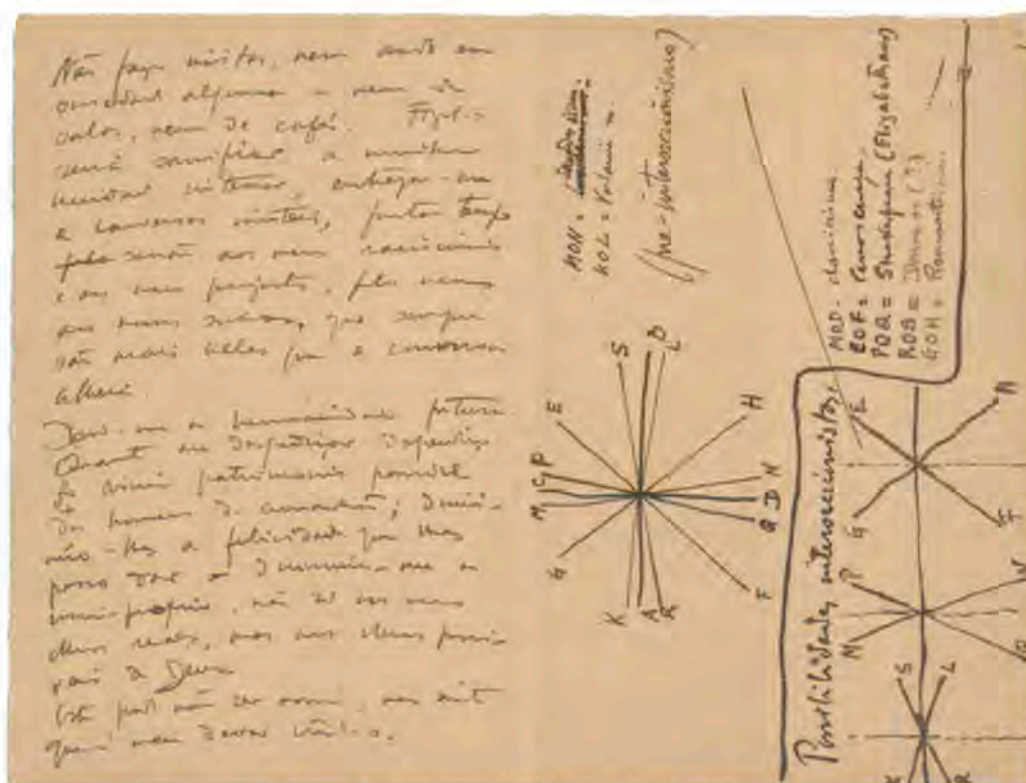 Não faço visitas, nem ando em
sociedade alguma - nem de
salas, nem de cafés. Fazel-o
seria sacrificar a minha
unidade interior, entregar-me
a conversas inuteis, furtar tempo
senão aos meus raciocinios
e aos meus projectos, pelo menos
aos meus sonhos, que sempre
são mais bellos que a conversa
alheia.
Devo-me a humanidade futura.
Quanto me desperdiçar desperdiço
do divino patrimonio possivel
dos homens de amanhã; diminuo-
-lhes a felicidade que lhes
posso dar e diminuo-me a
mim-proprio, não só aos meus
olhos reaes, mas aos olhos possi-
veis de Deus.
Isto pode não ser assim, mas sinto
que é meu dever crel-o.
MON =
KOL =
(pre-interseccionismo)
S B L
E H
P N
C D
M Q
G F
K A R
MOD - classicismo.
EOF = Renascença.
POQ = Shakespeare (Elizabethans)
ROS =
GOH = Romantismo.
Possibilidades interseccionistas.
E H
G F
P N
M Q
S L
K R